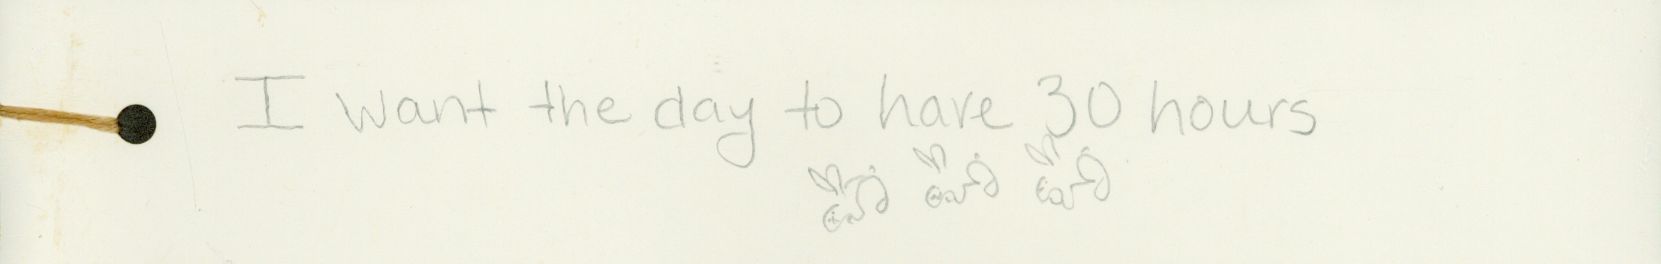 I want the day to have 30 hours